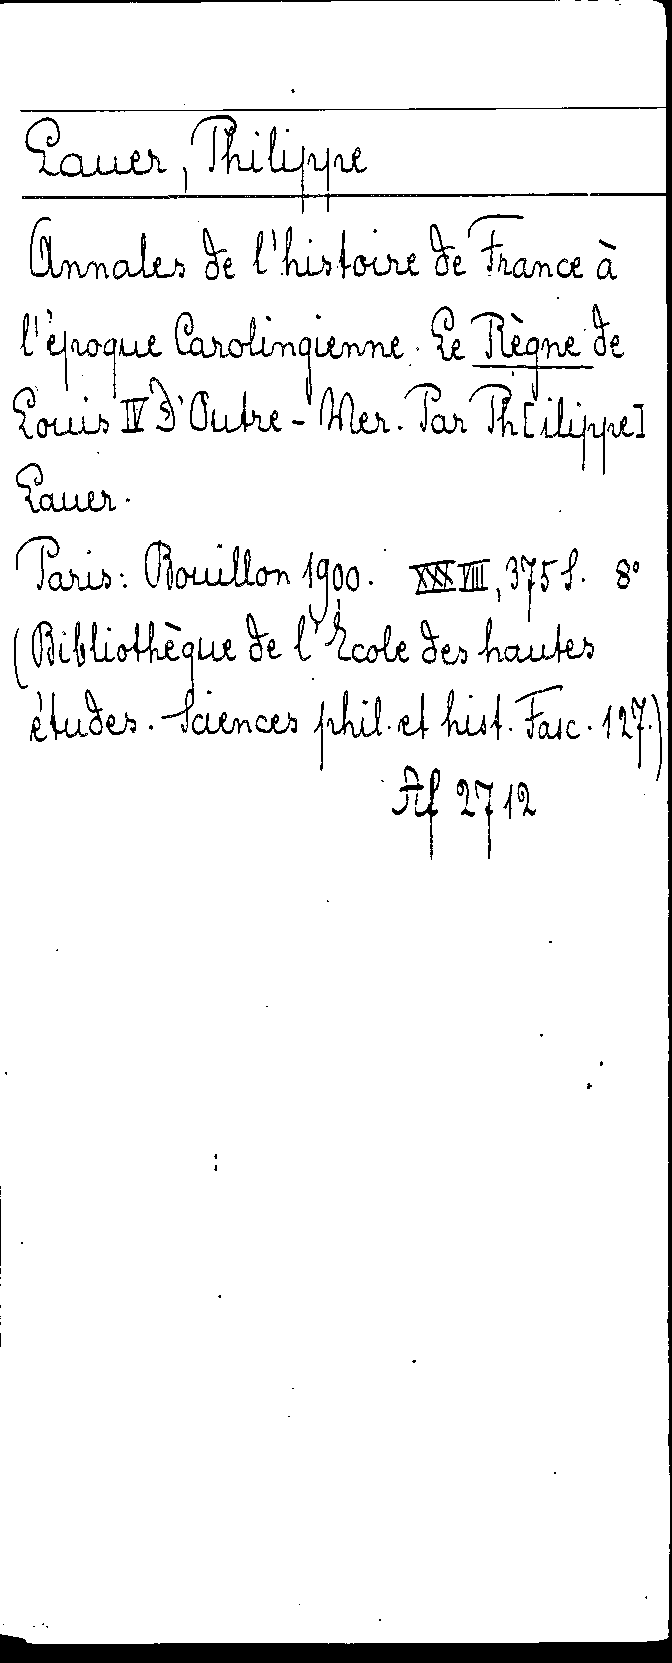 Lauer, Philippe
Annales de l'histoire de France à
l'époque Carolingienne. Le Règne de
Louis IV d'Outre-Mer. Par Ph[ilippe]
Lauer.
Paris: Bouillon 1900. XXXVIII, 375 S. 8°
(Bibliothèque de l'École des hautes
études. Sciences phil. et hist. Fasc. 127.)
Af 2712